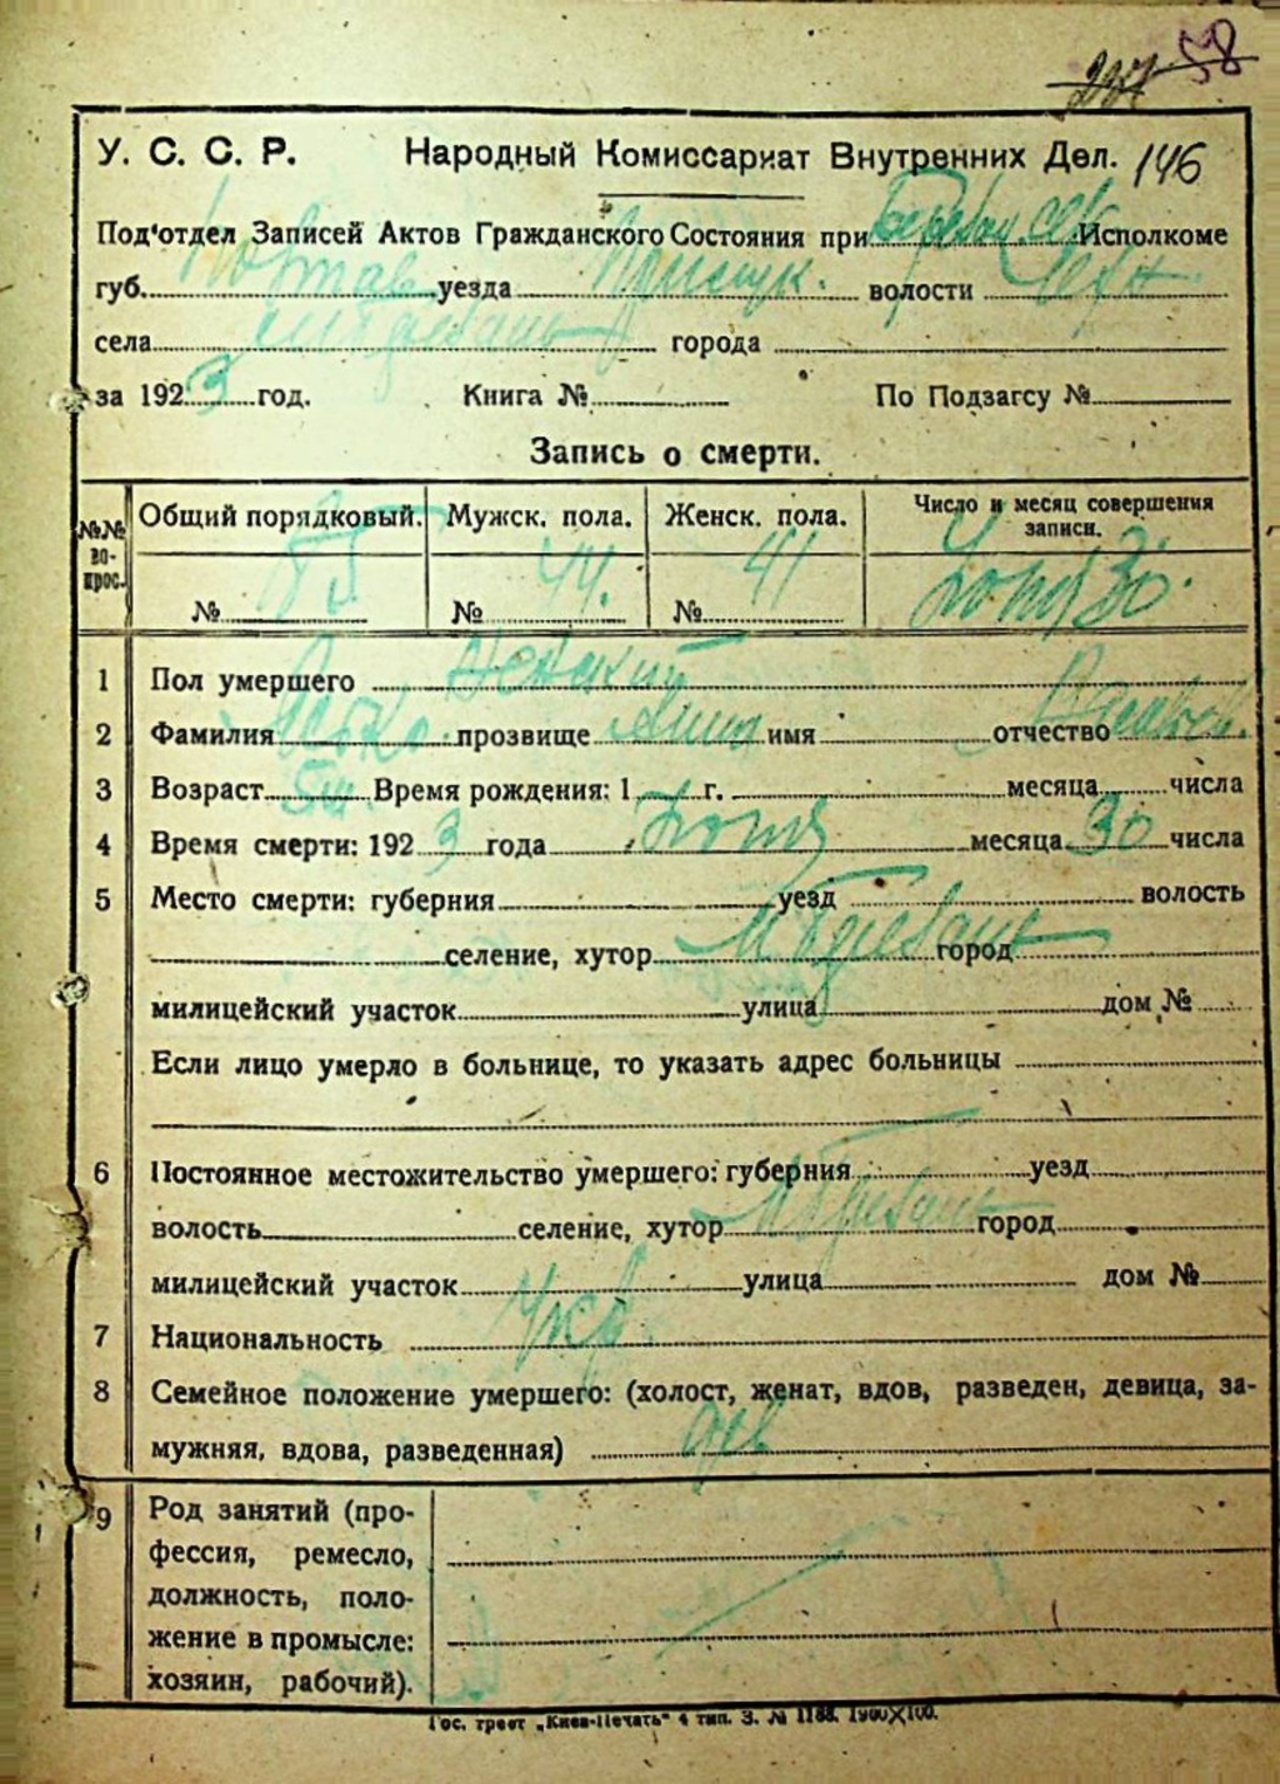 58
У. С. С. Р. Народный Комиссариат Внутренних Дел. 146
Под'отдел Записей Актов Гражданского Состояния при Исполкоме
губ. Полтав уезда волости
села города
за 1923 год. Книга № По Подзагсу №
Запись о смерти.
№№ вопрос. Общий порядковый. Мужск. пола. Женск. пола. Число и месяц совершения записи.
№ 85 № 44. № 41 30.
1 Пол умершего Женский
2 Фамилия прозвище Анна имя отчество
3 Возраст 5 м. Время рождения: 1 г. месяца числа
4 Время смерти: 1923 года месяца 30 числа
5 Место смерти: губерния уезд волость
селение, хутор город
милицейский участок улица дом №
Если лицо умерло в больнице, то указать адрес больницы
6 Постоянное местожительство умершего: губерния уезд
волость селение, хутор город
милицейский участок улица дом №
7 Национальность Укр.
8 Семейное положение умершего: (холост, женат, вдов, разведен, девица, за-
мужняя, вдова, разведенная) дев
9 Род занятий (про-
фессия, ремесло,
должность, поло-
жение в промысле:
хозяин, рабочий).
Гос. трест „Киев-Печать" 4 тип. З. № 1188. 1900Х100.